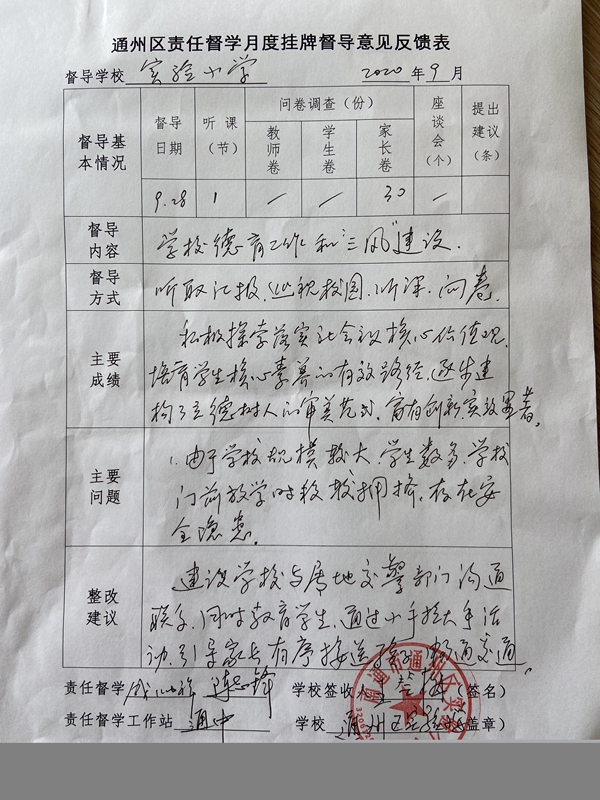 通州区责任督学月度挂牌督导意见反馈表
督导学校 实验小学 2020年9月
督导基本情况
督导日期
听课(节)
问卷调查(份)
教师卷
学生卷
家长卷
座谈会(个)
提出建议(条)
9.28 1 — — 30 —
督导内容
学校德育工作和"三风"建设.
督导方式
听取汇报、巡视校园、听课、问卷.
主要成绩
积极探索落实社会主义核心价值观,
培育学生核心素养的有效路径,逐步建
构了立德树人的审美范式,富有创新,实效显著。
主要问题
1. 由于学校规模较大,学生数多,学校
门前放学时段较拥挤,存在安
全隐患。
整改建议
建议学校与属地交警部门沟通
联系,同时教育学生,通过小手拉大手活
动,引导家长有序接送 畅通交通。
责任督学 学校签收人 (签名)
责任督学工作站 通中 学校 通州区实验小学 (盖章)